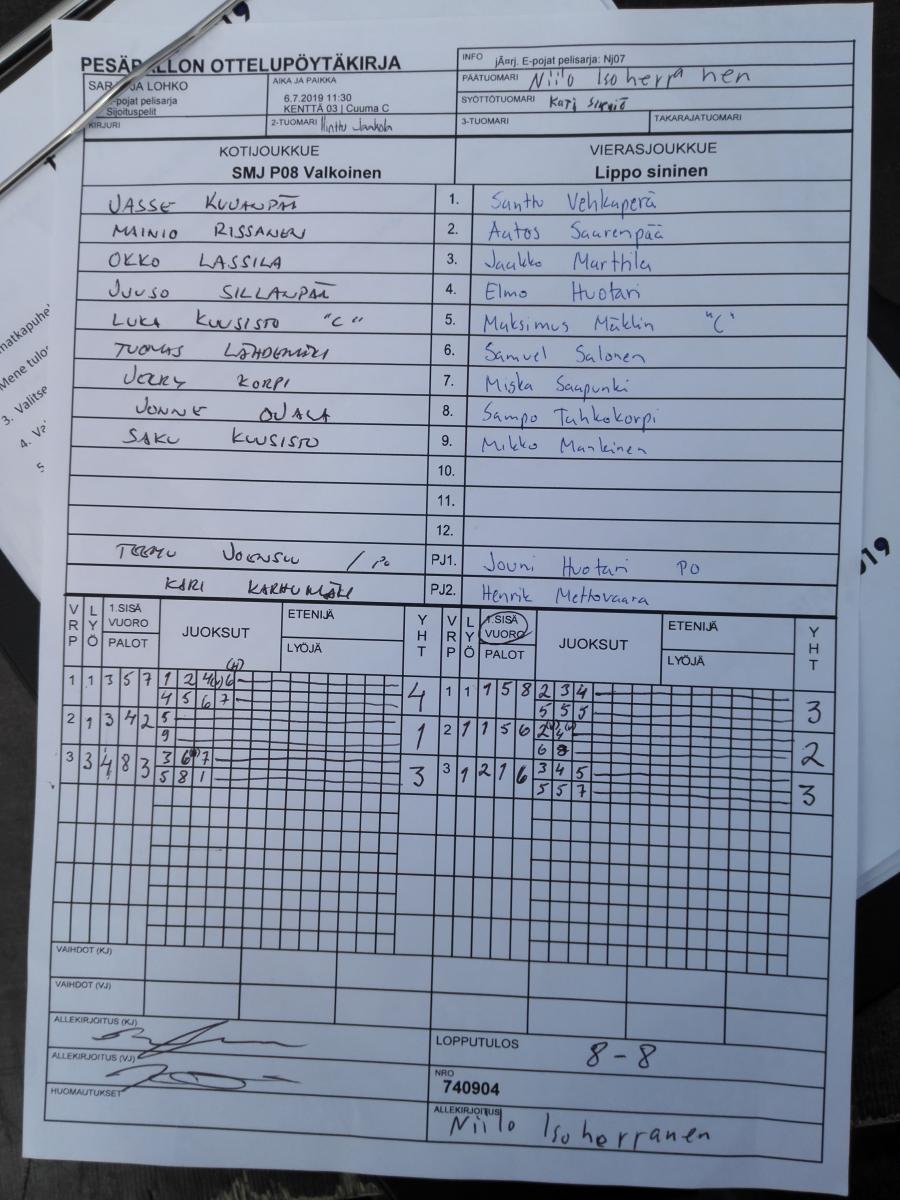 19
PESÄPALLON OTTELUPÖYTÄKIRJA
INFO jÃ¤rj. E-pojat pelisarja: Nj07
PÄÄTUOMARI Niilo Isoherranen
SYÖTTÖTUOMARI Kati
SARJA JA LOHKO
E-pojat pelisarja
Sijoituspelit
AIKA JA PAIKKA
6.7.2019 11:30
KENTTÄ 03 | Cuuma C
KIRJURI
2-TUOMARI Minttu
3-TUOMARI
TAKARAJATUOMARI
KOTIJOUKKUE VIERASJOUKKUE
SMJ P08 Valkoinen Lippo sininen
JASSE KUJANPÄÄ 1. Santtu Vehkaperä
MAINIO RISSANEN 2. Aatos Saarenpää
OKKO LASSILA 3. Jaakko Marttila
JUUSO SILLANPÄÄ 4. Elmo Huotari
LUKA KUUSISTO "C" 5. Maksimus Mäklin "C"
TUOMAS LÄHDEMÄKI 6. Samuel Salonen
JERRY KORPI 7. Miska Saapunki
JONNE OJALA 8. Sampo Tuhkokorpi
SAKU KUUSISTO 9. Mikko Mankinen
10.
11.
12.
TEEMU JOENSUU / PO PJ1. Jouni Huotari PO
KARI KARHUMÄKI PJ2. Henrik Mettovaara
VRP LYÖ 1.SISÄ VUORO PALOT JUOKSUT ETENIJÄ LYÖJÄ YHT VRP LYÖ 1.SISÄ VUORO PALOT JUOKSUT ETENIJÄ LYÖJÄ YHT
1 1 3 5 7 1 2 4 6 4 1 1 1 5 8 2 3 4 3
4 5 6 7 5 5 5
2 1 3 4 2 5 1 2 1 1 5 6 2 4 2
9 6 8
3 3 4 8 3 3 6 7 3 3 1 2 1 6 3 4 5 3
5 8 1 5 5 7
VAIHDOT (KJ)
VAIHDOT (VJ)
ALLEKIRJOITUS (KJ)
ALLEKIRJOITUS (VJ)
HUOMAUTUKSET
LOPPUTULOS 8 - 8
NRO
740904
ALLEKIRJOITUS
Niilo Isoherranen
matkapuhe
Mene tulo
3. Valitse
4.
5
019